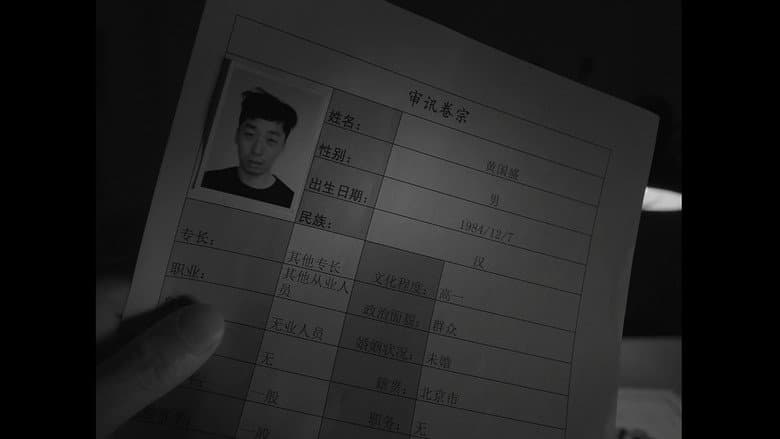 审讯卷宗
姓名： 黄国盛
性别： 男
出生日期： 1984/12/7
民族： 汉
专长： 其他专长 文化程度： 高一
职业： 其他从业人员 政治面貌： 群众
无业人员 婚姻状况： 未婚
无 籍贯： 北京市
一般 职务： 无
一般